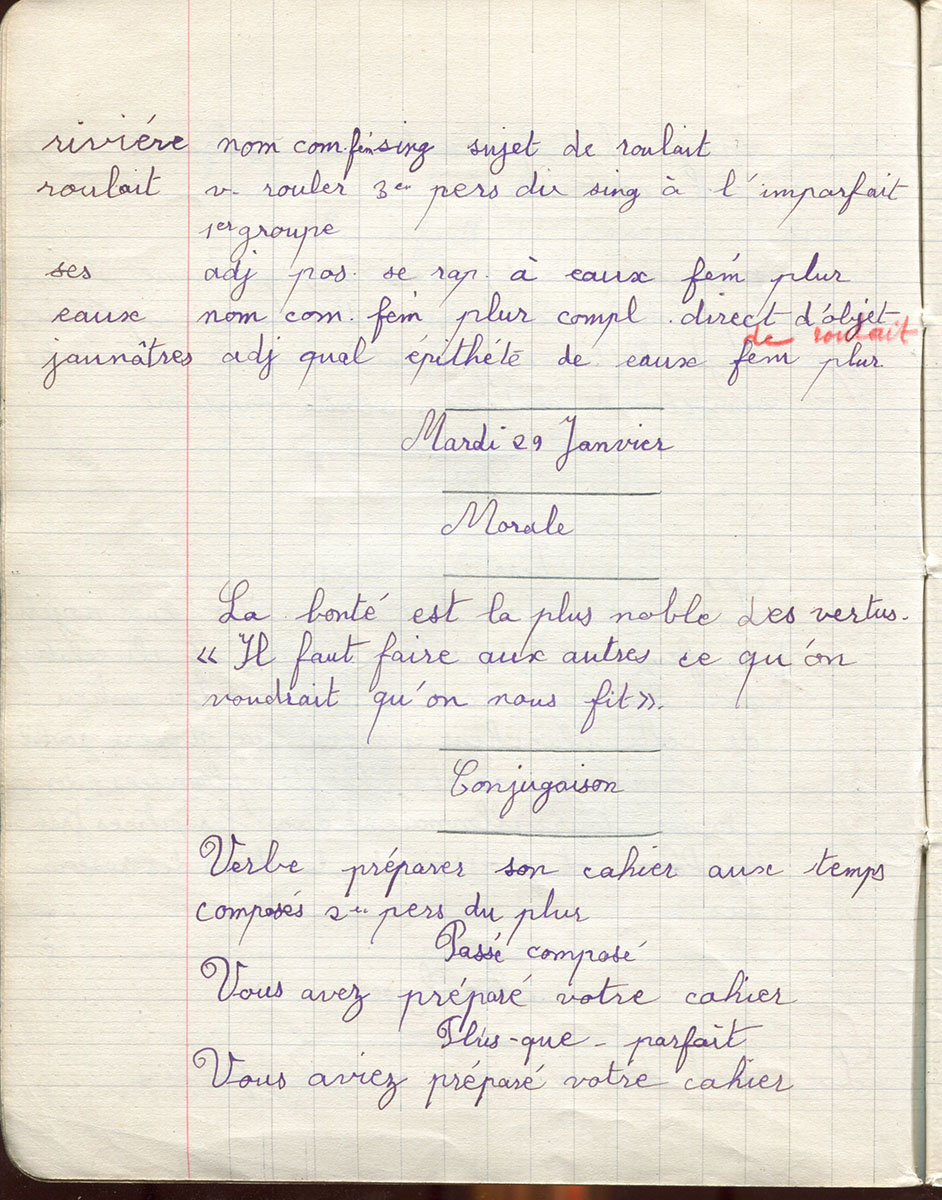 riviére nom com. fém sing sujet de roulait
roulait v. rouler 3em pers du sing à l'imparfait
1er groupe
ses adj pos. se rap. à eaux fém plur
eaux nom com. fém plur compl. direct d'objet
de roulait
jaunâtres adj qual épithéte de eaux fém plur.
Mardi 29 Janvier
Morale
La bonté est la plus noble des vertus.
« Il faut faire aux autres ce qu'on
voudrait qu'on nous fit ».
Conjugaison
Verbe préparer son cahier aux temps
composés 2em pers du plur
Passé composé
Vous avez préparé votre cahier
Plus-que-parfait
Vous aviez préparé votre cahier